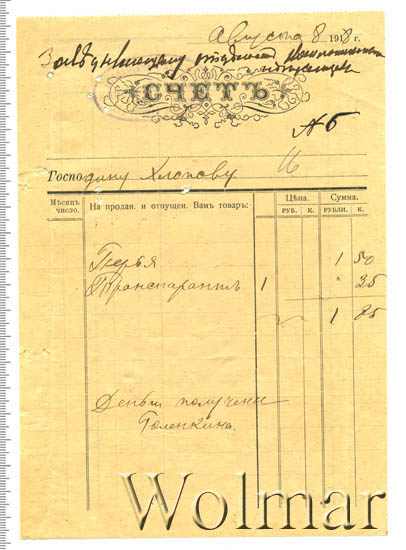 Августа 8 1918 г.
Заведывающему отделом
СЧЕТЪ
№ 6
Господину Хлопову
Мѣсяцъ число. На продан. и отпущен. Вамъ товаръ: Цѣна. Сумма.
РУБ. К. РУБЛИ. К.
Перья 1 50
Транспарантъ 1 " 25
1 75
Деньги получени
Голенкина.
Wolmar